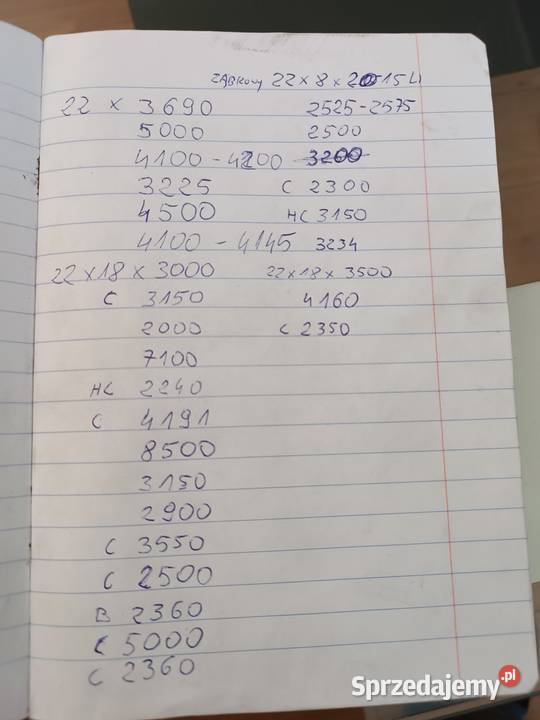 ZĄBKOWY 22 x 8 x 2015 Li
22 x 3690 2525-2575
5000 2500
4100 - 4200 3200
3225 C 2300
4500 HC 3150
4100 - 4145 3234
22 x 18 x 3000 22 x 18 x 3500
C 3150 4160
2000 C 2350
7100
HC 2240
C 4191
8500
3150
2900
C 3550
C 2500
B 2360
C 5000
C 2360
Sprzedajemy.pl